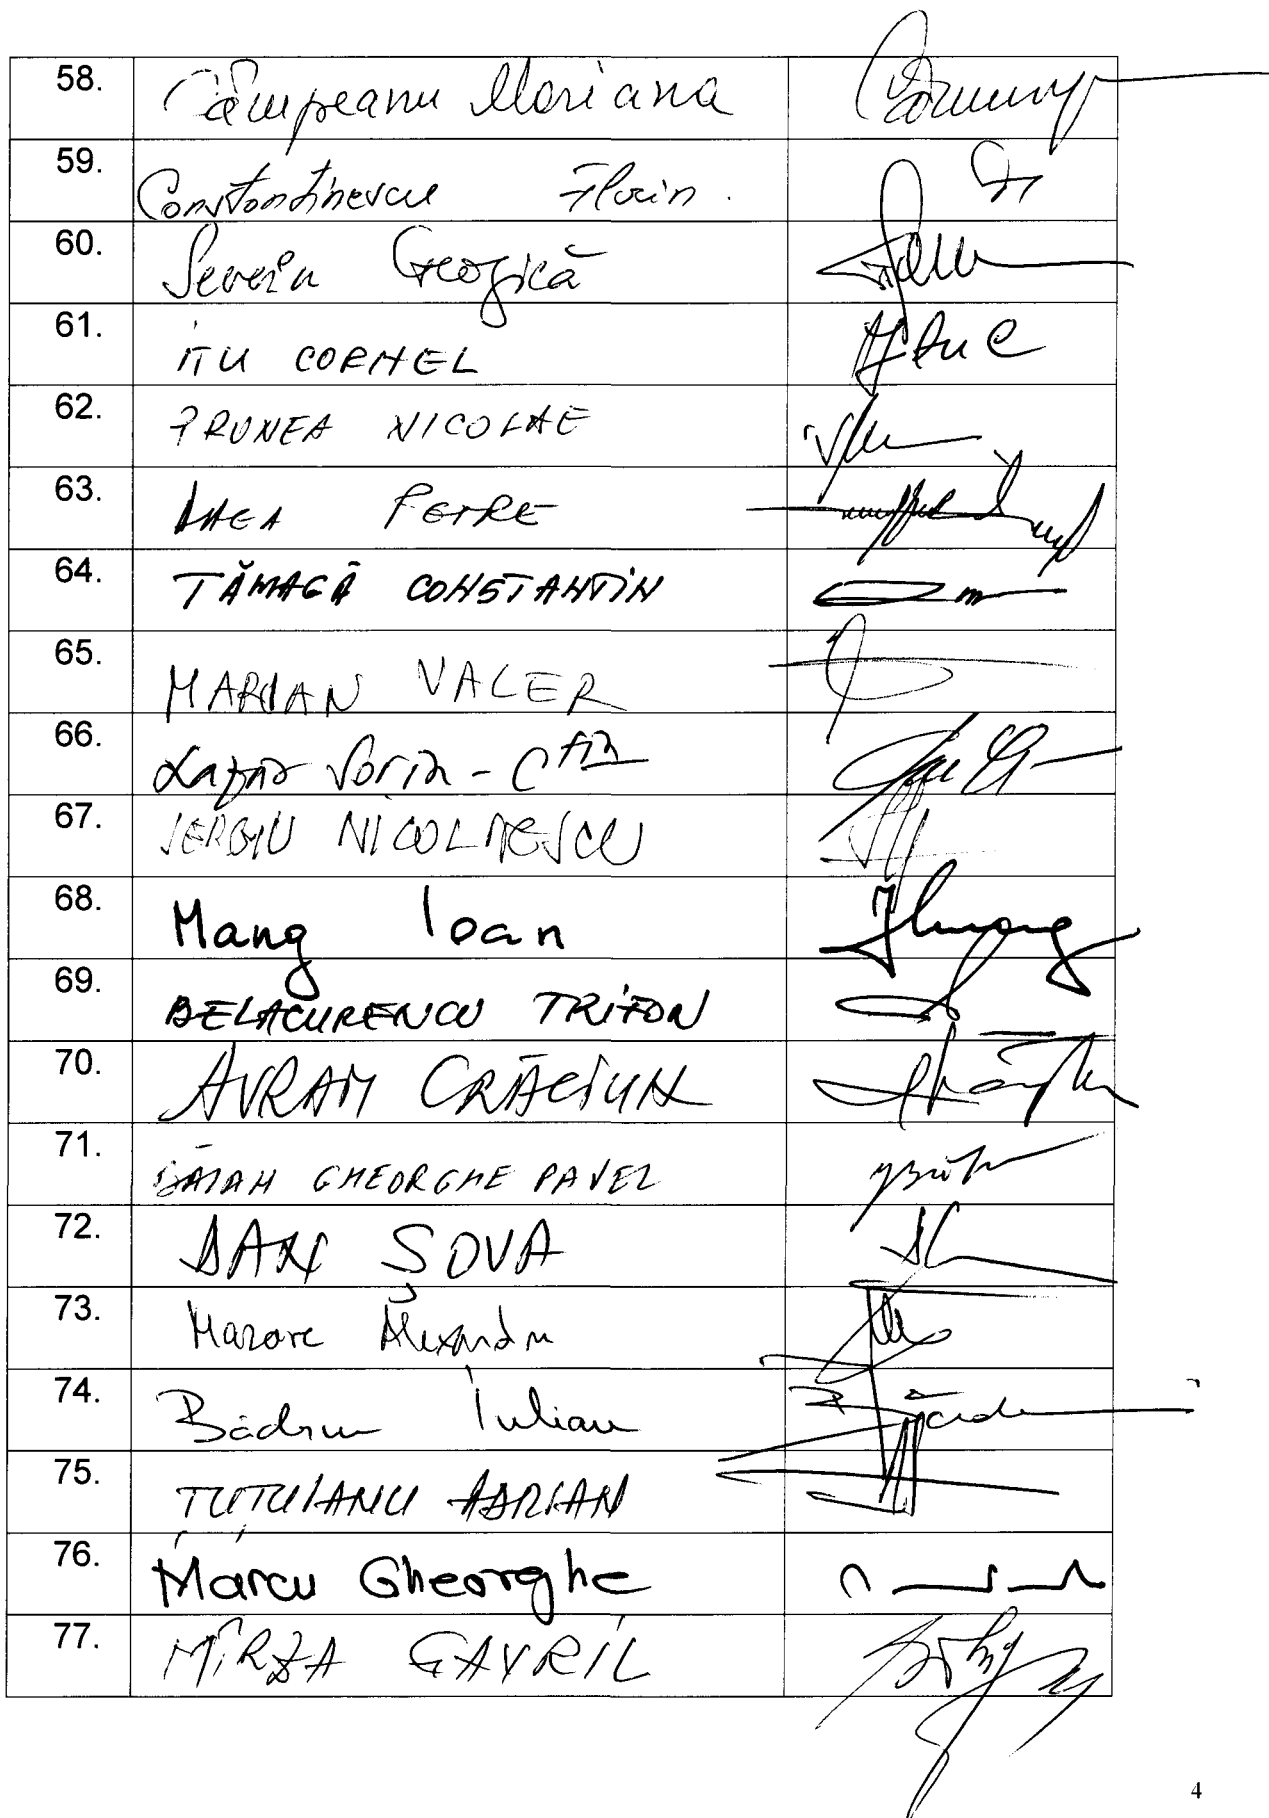 58. Câmpeanu Mariana
59. Constantinescu Florin.
60. Severin Georgică
61. ITU CORNEL
62. PRUNEA NICOLAE
63. DAEA PETRE
64. TĂMAGĂ CONSTANTIN
65. MARIAN VALER
66. Lazăr Sorin - Ctin
67. SERGIU NICOLAESCU
68. Mang Ioan
69. BELACURENCU TRIFON
70. AVRAM CRĂCIUN
71. GHEORGHE PAVEL
72. DAN ȘOVA
73. Mazăre Alexandru
74. Iulian
75. TUȚUIANU ADRIAN
76. Marcu Gheorghe
77. MÎRZA GAVRIL
4